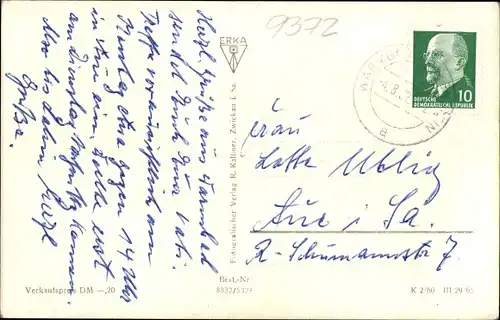 9372
Herzl. Grüße aus Warmbad
sendet Euch Euer Vati.
Treffe voraussichtlich am
Montag, etwa gegen 14 Uhr
in Aue ein. Sollte erst
am Dienstag
kommen.
Also bis dahin
Grüße.
ERKA
Fotografischer Verlag R. Kallmer, Zwickau i. Sa.
Verkaufspreis DM —,20
Best.-Nr
8832/5329
DEUTSCHE
DEMOKRATISCHE REPUBLIK
10
a
Frau
Lotte Uhlig
Aue i. Sa.
R.-Schumannstr. 7.
K 2/60 III 29 65